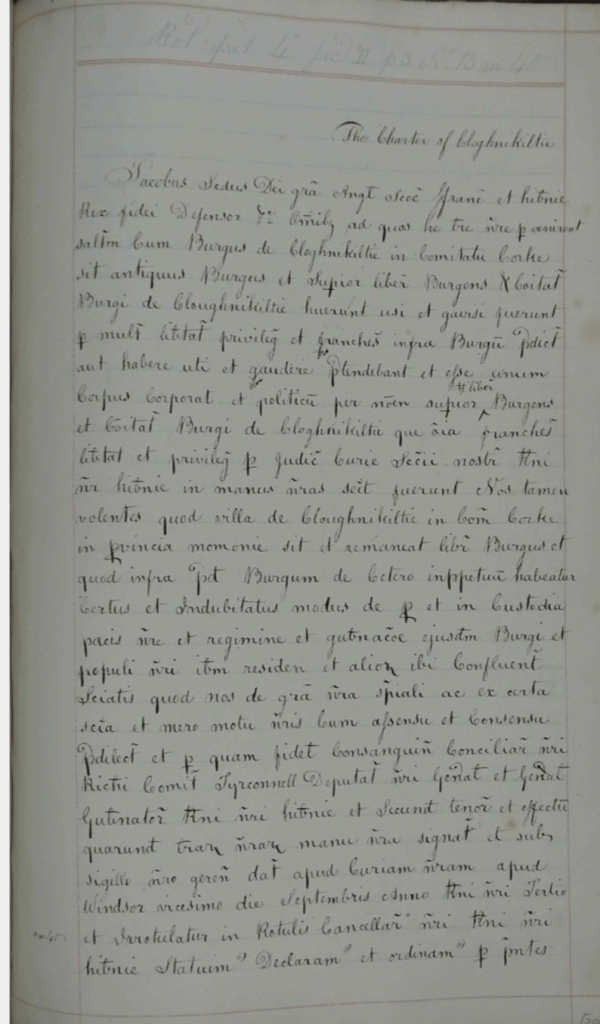 The Charter of Cloghnikiltie
Jacobus Sedus Dei grã Angł Scoc̃ Franc̃ et hib̃nie
Rex fidei Defensor &c Om̃ib; ad quos he tre nr̃e p venirent
saltm̃ Cum Burgus de Cloghnikiltie in Comitatu Corke
sit antiquus Burgus et Supior liber̃ Burgens & Coitat̃
Burgi de Cloughnikiltie huerunt usi et gavisi fuerunt
p mult̃ lib̃tat̃ privileg̃ et franches̃ infra Burgũ p̃dict̃
aut habere uti et gaudere p̃tendebant et esse unum
Corpus Corporat̃ et politicũ per nõen supior liber̃ Burgens
et Cõitat̃ Burgi de Cloghnikiltie que õia franches̃
lib̃tat et privileg̃ p Judic̃ Curie Scc̃ii nostr̃ Rni
nr̃ hib̃nie in manus nr̃as seit̃ fuerunt Nos tamen
volentes quod villa de Cloughnikiltie in Com̃ Corke
in p̱vincia momonie sit et remaneat lib̃r Burgus et
quod infra p̃d Burgum de Cetero inppetuũ habeatur
Certus et Indubitatus modus de p et in Custodia
pacis nr̃e et regimine et gub̃nac̃oe ejusdm̃ Burgi et
populi nr̃i ib̃m residen et alioꝝ ibi Confluent̃
Sciatis quod nos de grã nr̃a sp̃iali ac ex certa
scĩa et mero motu nr̃is Cum assensu et Consensu
P̃dilect̃ et p quam fidel̃ Consanguin̄ Conciliar̃ nr̃i
Rici Comit̃ Tyrconnell Deputat̃ nr̃i Gen̄al̃ et Gen̄al̃
Gub̃nator̃ Rni nr̃i hib̃nie et Secund tenor̃ et effectũ
quarund l̃rarꝝ nr̃arꝝ manu nr̃a signat̃ et sub
sigillo nr̃o geren̄ dat̃ apud Curiam nr̃am apud
Windsor vicesimo die Septembris Anno Rni nr̃i Tertio
et Irrotulatur in Rotulis Cancellar̃ nr̃i Rni nr̃i
hib̃nie Statuim⁹ Declaram⁹ et ordinam⁹ p p̃ntes